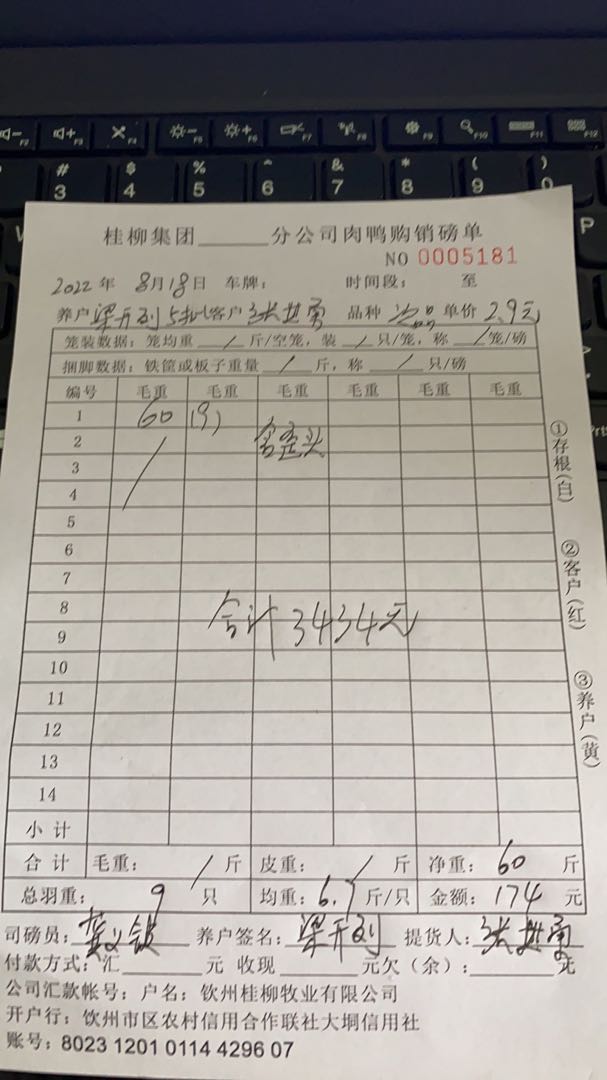 桂柳集团______分公司肉鸭购销磅单
NO 0005181
2022年 8月18日 车牌： 时间段： 至
养户 梁开列 5批 客户 张进勇 品种 次品 单价 2.9元
笼装数据：笼均重 / 斤/空笼，装 / 只/笼，称 / 笼/磅
捆脚数据：铁筐或板子重量 / 斤，称 / 只/磅
编号 毛重 毛重 毛重 毛重 毛重 毛重
1 60 (9)
2 含歪头
3
4
5
6
7
8 合计3434元
9
10
11
12
13
14
小计
合计 毛重： / 斤 皮重： / 斤 净重： 60 斤
总羽重： 9 只 均重：6.7斤/只 金额：174 元
司磅员： 养户签名：梁开列 提货人：张进勇
付款方式：汇______元 收现______元欠（余）：______元
公司汇款帐号：户名：钦州桂柳牧业有限公司
开户行：钦州市区农村信用合作联社大垌信用社
账号：8023 1201 0114 4296 07
①存根(白)
②客户(红)
③养户(黄)